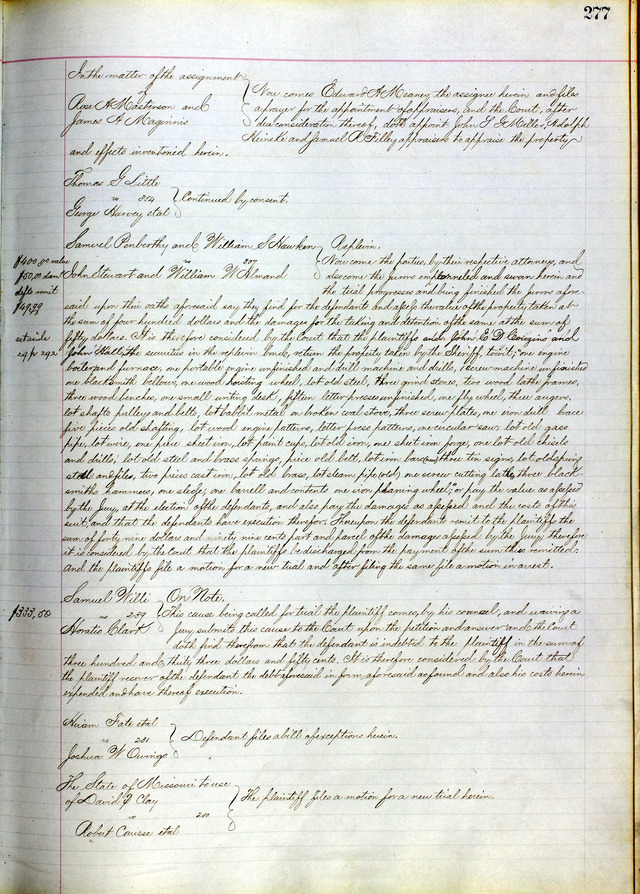 277
In the matter of the assignment
of
Rose A Masterson and
James A Maginnis
Now comes Edward A Meaney the assignee herein and files
a prayer for the appointment of appraisers, and the Court, after
due consideration thereof, doth appoint John S G Miller, Adolph
Heincke and Samuel R Filley appraisers to appraise the property
and effects inventoried herein.
Thomas G Little
vs 254
George Harvey et al
Continued by consent.
Samuel Penberthy and William S Hawken
vs 237
John Stewart and William W Almand
Replevin.
Now come the parties, by their respective attorneys, and
$400.00 value
$50.00 dam
defts remit
$49.99
set aside
29 p 292
also come the jurors empanneled and sworn herein and
the trial progresses and being finished the jurors afore-
said upon their oaths aforesaid say they find for the defendants and assess the value of the property taken at
the sum of four hundred dollars and the damages for the taking and detention of the same at the sum of
fifty dollars. It is therefore considered by the Court that the plaintiffs and John C D Coiggins and
John Hall, the securities in the replevin bond, return the property taken by the Sheriff, towit; "one engine
boiler and furnace, one portable engine unfinished and drill machine and drills, 1 screw machine unfinished
one blacksmith bellows, one wood hoisting wheel, lot old steel, three grind stones, two wood lathe frames,
three wood benches, one small writing desk, fifteen letter presses unfinished, one fly wheel, three augers,
lot shafts pulleys and belts, lot babbit metal one broken coal stove, three screw plates, one iron drill brace
five pieces old shafting, lot wood engine patterns, letter press patterns, one circular saw, lot old gass
pipe, lot wire, one piece sheet iron, lot paint cups, lot old iron, one sheet iron forge, one lot old chisels
and drills, lot old steel and brass springs, piece old belt, lot iron bars three tin signs, lot old spring
steel and files, two pieces cast iron, lot old brass, lot steam pipe (old) one screw cutting lathe, three black
smiths hammers, one sledge, one barrell and contents one iron planning wheel," or pay the value as assessed
by the Jury, at the election of the defendants, and also pay the damages as assessed and the costs of this
suit, and that the defendants have execution therefor. Thereupon the defendants remit to the plaintiffs the
sum of forty nine dollars and ninety nine cents part and parcel of the damages assessed by the Jury; therefore
it is considered by the Court that the plaintiffs be discharged from the payment of the sum thus remitted.
And the plaintiffs file a motion for a new trial and after filing the same file a motion in arrest.
Samuel Willi
vs 239
Horatio Clark
On Note.
$333.50
This cause being called for trial the plaintiff comes, by his counsel, and waiving a
Jury submits this cause to the Court upon the petition and answer and the Court
doth find therefrom that the defendant is indebted to the plaintiff in the sum of
three hundred and thirty three dollars and fifty cents. It is therefore considered by the Court that
the plaintiff recover of the defendant the debt aforesaid in form aforesaid as found and also his costs herein
expended and have thereof execution.
Hiram Fate et al
vs 231
Joshua W Owings
Defendant files a bill of exceptions herein.
The State of Missouri to use
of David J Clay
vs 240
Robert Causse et al
The plaintiff files a motion for a new trial herein.